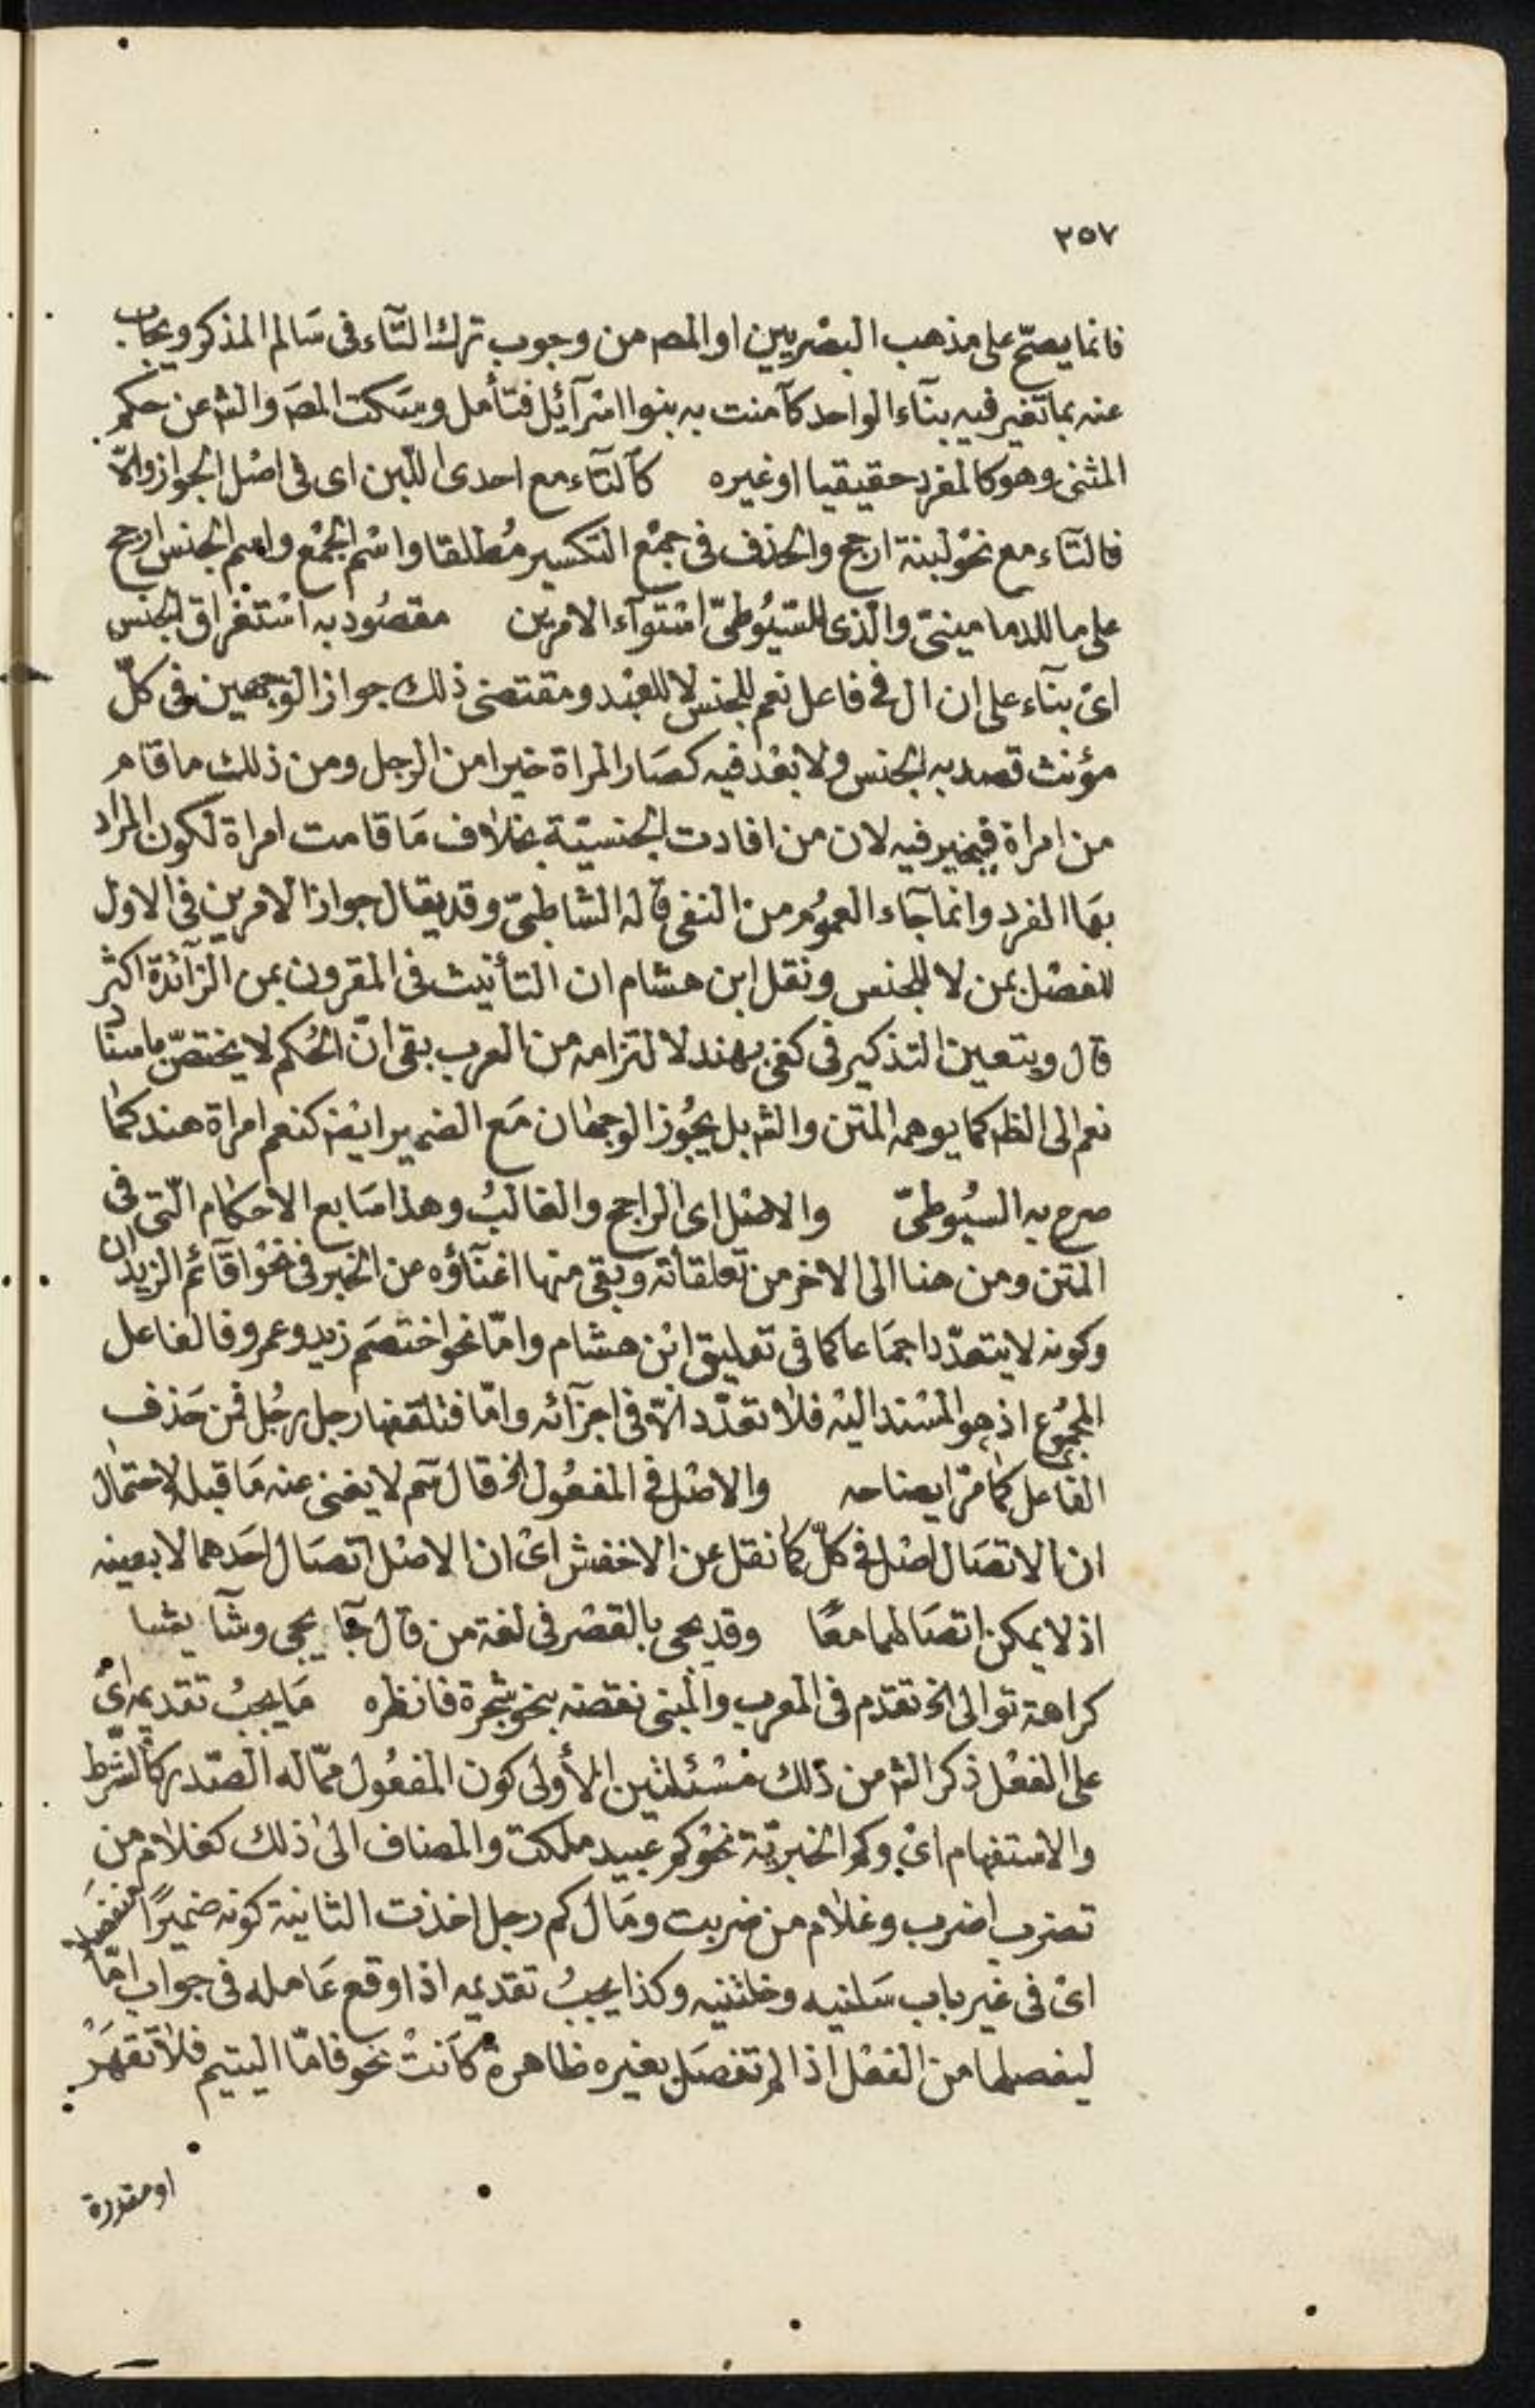 ٢٥٧
فانما يصحّ على مذهب البصْريين او المصه من وجوب ترك التّآء فى سَالم المذكر ويجاب
عنه بما تغير فيه بنآء الواحد كآمنت به بنوا اسْرآئيل فتأمل وسَكت المصَ والشه عن حكم
المثنى وهو كالمفرد حقيقيا او غيره كآلتآء مع احدى اللبن اى فى اصْل الجواز والّا
فالتآء مع نحْو لبنة ارجح والحذف فى جمْع التكسير مُطلقا واسْم الجْمْع واسم الجنس ارجح
على ما للدمامينىّ والّذى للسّيُوطىّ اسْتوآء الامرين مقصُود به اسْتغراق الجنس
اىْ بنآء على ان ال فى فاعل نعم للجنس لا للعهْد ومقتضى ذلك جواز الوَجهين فى كلّ
مؤنث قصد به الجنس ولا بعْد فيه كصَار المراة خيرا من الرجل ومن ذلك ما قام
من امراة فيخير فيه لان من افادت الجنسيّة بخلاف مَا قامت امراة لكون المراد
بهَا المفرد وانما جآء العمُوم من النفى قاله الشاطبىّ وقد يقال جواز الامرين فى الاول
للفصْل بمن لا للجنس ونقل ابن هشام ان التأنيث فى المقرون بمن الزّآئدة اكثر
قال ويتعين التذكير فى كفى بهند لالتزامه من العرب بقى انّ الحُكم لا يختصّ باسنَاد
نعم الى الظه كما يوهمه المتن والشه بل يجُوز الوجهان مَع الضمير ايضه كنعم امراة هند كما
صرح به السيُوطىّ والاصْل اى الراجح والغالبُ وهذا سَابع الاحكام الّتى فى
المتن ومن هنا الى الاخر من تعلقاته وَبقى منها اغنآؤه عن الخبر فى نحْو اقآئم الزيدان
وكونه لا يتعدّد اجمَاعا كما فى تعليق ابْن هشام وامّا نحو اختصَم زيد وعمرو فالفاعل
المجمُوع اذ هو المسْند اليْه فلا تعدّد الّا فى اجزآئه وامّا فتلقفها رجل رجُل فمن حَذف
الفاعل كما مرّ ايضاحه والاصْل فى المفعُول الخ قال سَم لا يغنى عنه مَا قبله لاحتمال
ان الاتصَال اصْل فى كلّ كما نقل عن الاخفش اىْ ان الاصْل اتصَال احَدهما لا بعينه
اذ لا يمكن اتصَالهما معًا وقد يجى بالقصْر فى لغة من قال جَآ يجى وشآ يشا
كراهة توالى الخ تقدّم فى المعرب والمبنى نقضه بنحو شجرة فانظره مَا يجبُ تقديمه اىْ
على الفعْل ذكر الشه من ذلك مسْئلتين الأولى كون المفعُول ممّا له الصّدر كالشّرط
والاستفهام اىْ وكم الخبريّة نحْو كم عَبيد ملكت والمضاف الى ذلك كغلام من
تضرب اضرب وغلام من ضربت ومَال كم رجل اخذت الثانية كونه ضميرًا منفصَلا
اىْ فى غير باب سَلنيه وخلتنيه وكذا يجبُ تقديمه اذا وقع عَامله فى جواب امّا
ليفصلها من الفعْل اذا لم تفصَل بغيره ظاهرة كَانتْ نحو فامّا اليتيم فلا تَقهَرْ
او مقدرة